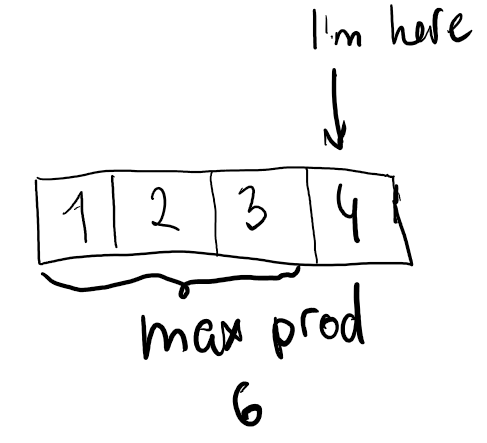 I'm here
1 2 3 4
max prod
6